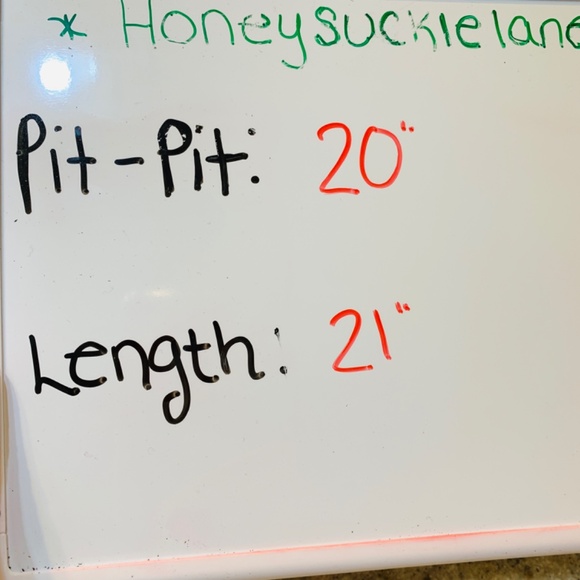 * Honeysucklelane
Pit-Pit: 20"
Length: 21"